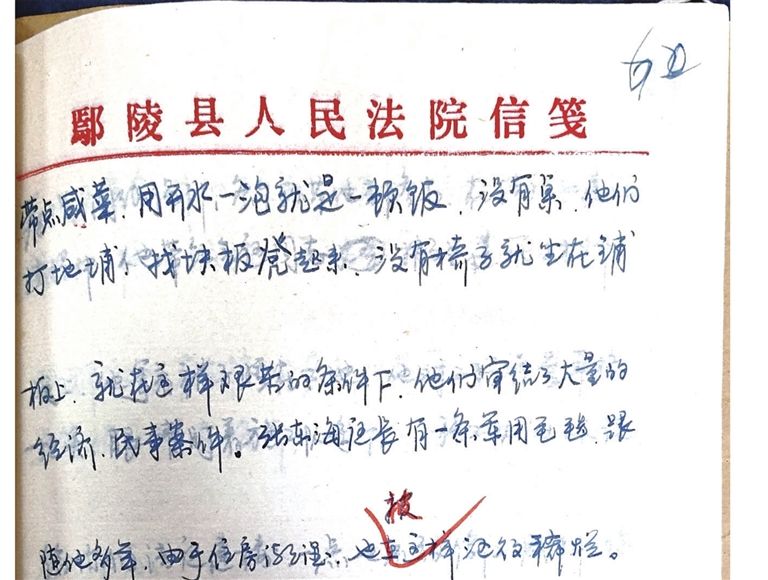 鄢陵县人民法院信笺
带点咸菜，用开水一泡就是一顿饭，没有桌，他们
打地铺，找块板凳起来，没有椅子就坐在铺
板上，就在这样艰苦的条件下，他们审结了大量的
经济、民事案件。张东海庭长有一条军用毛毯，跟
被
随他多年，由于住房 也 这样 稀烂。